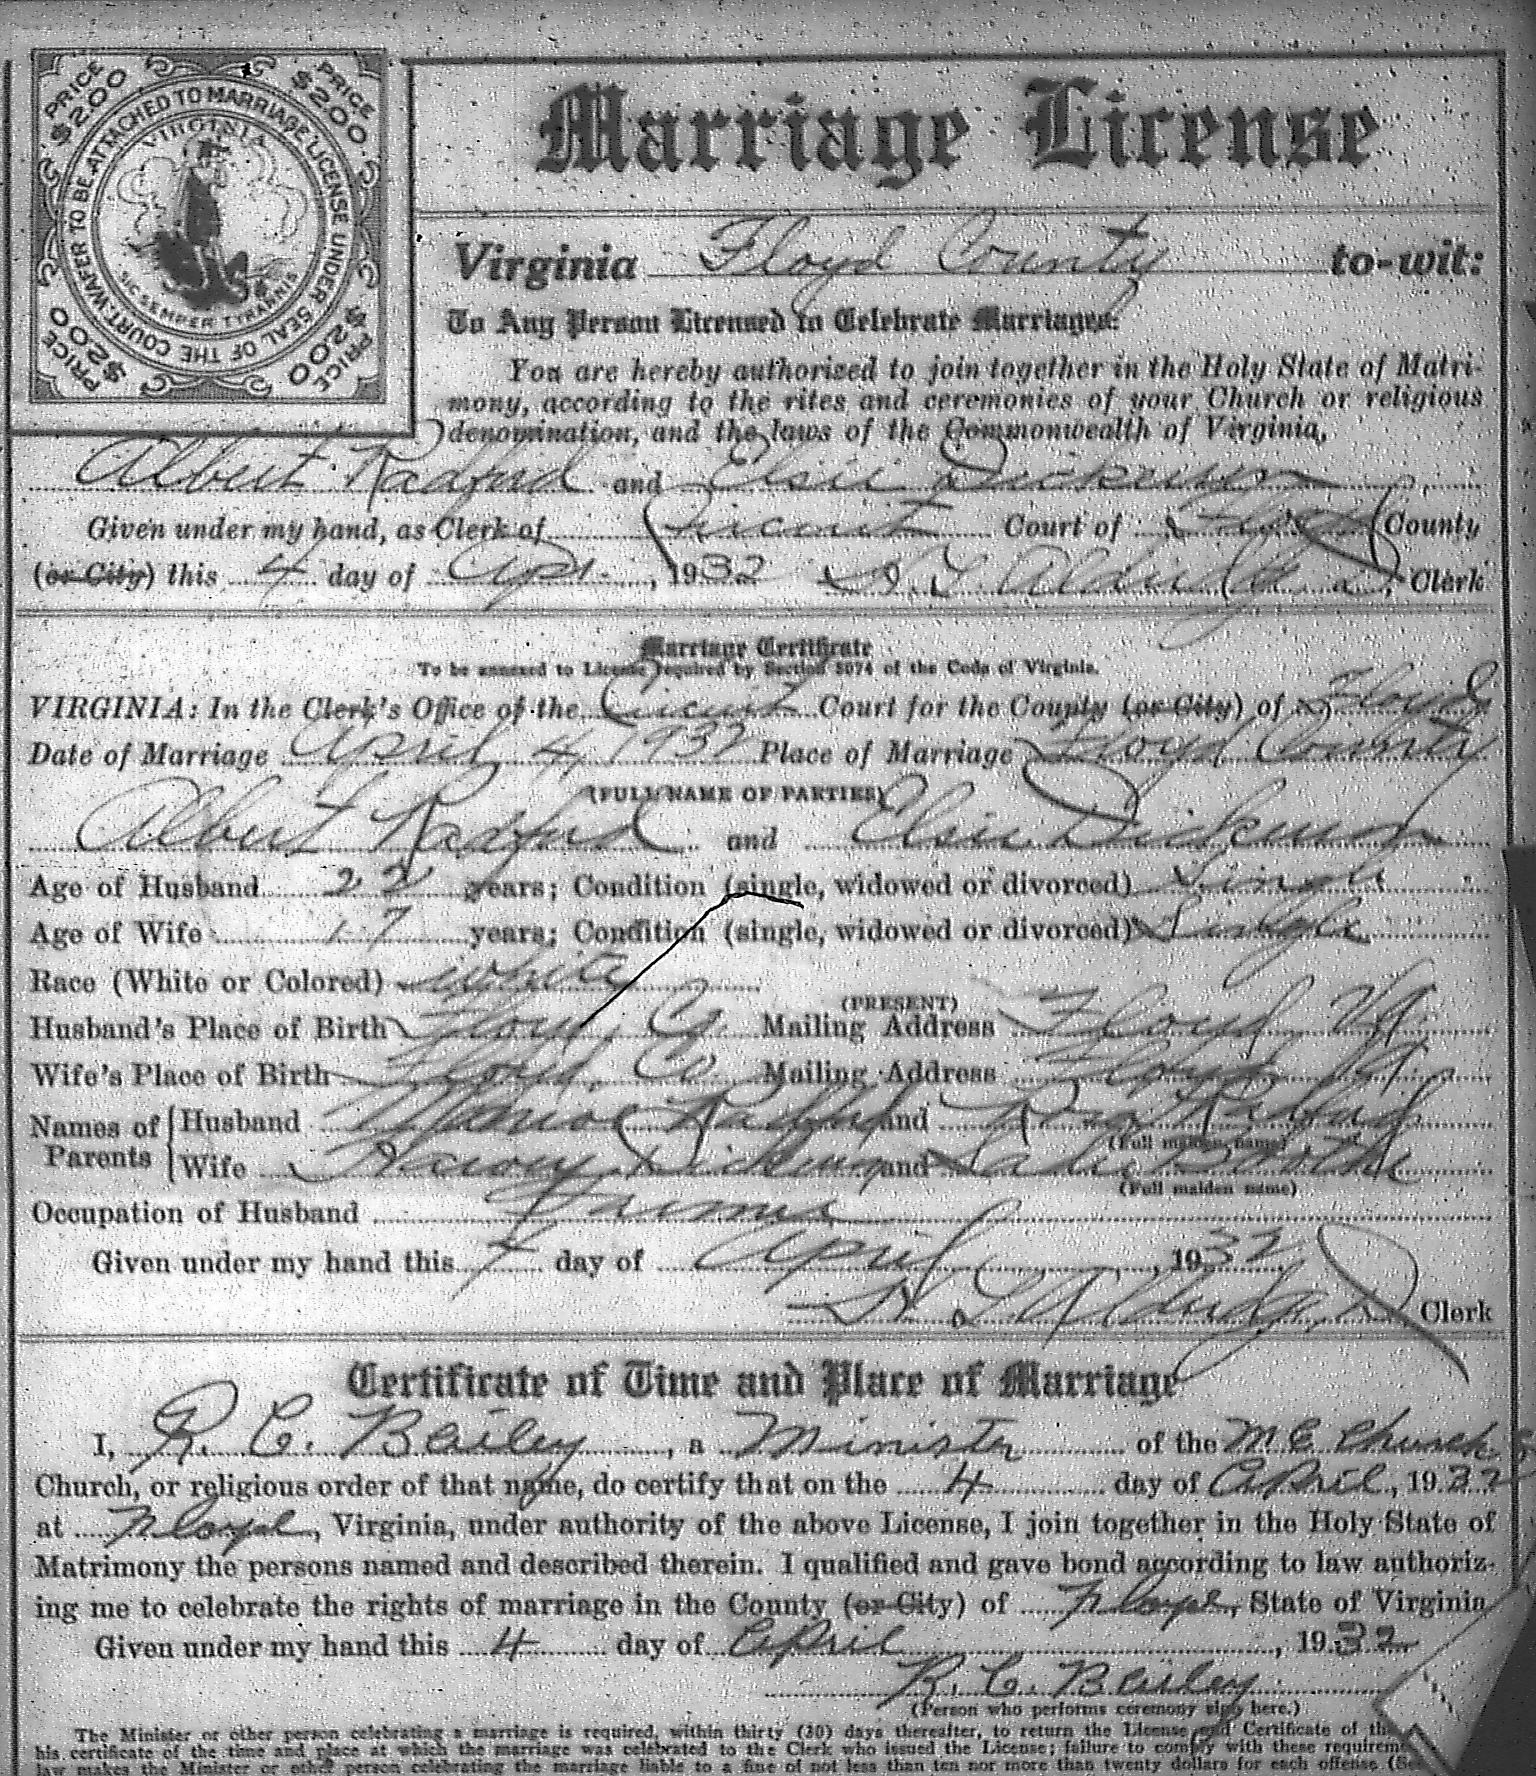 PRICE $2.00 PRICE $2.00
WAFER TO BE ATTACHED TO MARRIAGE LICENSE UNDER SEAL OF THE COURT
VIRGINIA
SIC SEMPER TYRANNIS
PRICE $2.00 PRICE $2.00
Marriage License
Virginia Floyd County to-wit:
To Any Person Licensed to Celebrate Marriages:
You are hereby authorized to join together in the Holy State of Matri-
mony, according to the rites and ceremonies of your Church or religious
denomination, and the laws of the Commonwealth of Virginia,
Albert Radford and Elsie Dickerson
Given under my hand, as Clerk of Circuit Court of Floyd County
(or City) this 4 day of Apr. , 1932 Clerk
Marriage Certificate
To be annexed to License required by Section 5074 of the Code of Virginia.
VIRGINIA: In the Clerk's Office of the Circuit Court for the County (or City) of Floyd
Date of Marriage April 4, 1932 Place of Marriage Floyd County
(FULL NAME OF PARTIES)
Albert Radford and Elsie Dickerson
Age of Husband 22 years; Condition (single, widowed or divorced) Single
Age of Wife 17 years; Condition (single, widowed or divorced) Single
Race (White or Colored) white
(PRESENT)
Husband's Place of Birth Floyd, Co. Mailing Address Floyd, Va.
Wife's Place of Birth Floyd, Co. Mailing Address Floyd, Va.
Names of Parents Husband Radford and Radford
(Full maiden name)
Wife Dickerson and Sadie
(Full maiden name)
Occupation of Husband Farmer
Given under my hand this 4 day of April , 1932
Clerk
Certificate of Time and Place of Marriage
I, R. C. Bailey , a Minister of the M E Church
Church, or religious order of that name, do certify that on the 4 day of April, 1932
at Floyd, Virginia, under authority of the above License, I join together in the Holy State of
Matrimony the persons named and described therein. I qualified and gave bond according to law authoriz-
ing me to celebrate the rights of marriage in the County (or City) of Floyd, State of Virginia
Given under my hand this 4 day of April , 1932
R. C. Bailey
(Person who performs ceremony sign here.)
The Minister or other person celebrating a marriage is required, within thirty (30) days thereafter, to return the License and Certificate of
his certificate of the time and place at which the marriage was celebrated to the Clerk who issued the License; failure to comply with these
law makes the Minister or other person celebrating the marriage liable to a fine of not less than ten nor more than twenty dollars for each offense